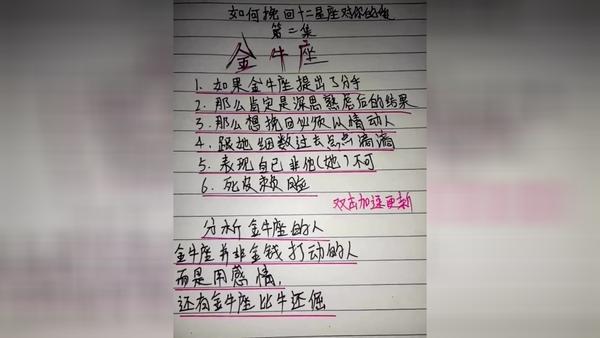 如何挽回十二星座对你的
第二集
金牛座
1. 如果金牛座提出了分手
2. 那么肯定是深思熟虑后的结果
3. 那么想挽回必须以情动人
4. 跟她细数过去点点滴滴
5. 表现自己非他(她)不可
6. 死皮赖脸
双击加速更新
分析金牛座的人
金牛座并非金钱打动的人
而是用感情,
还有金牛座比牛还倔